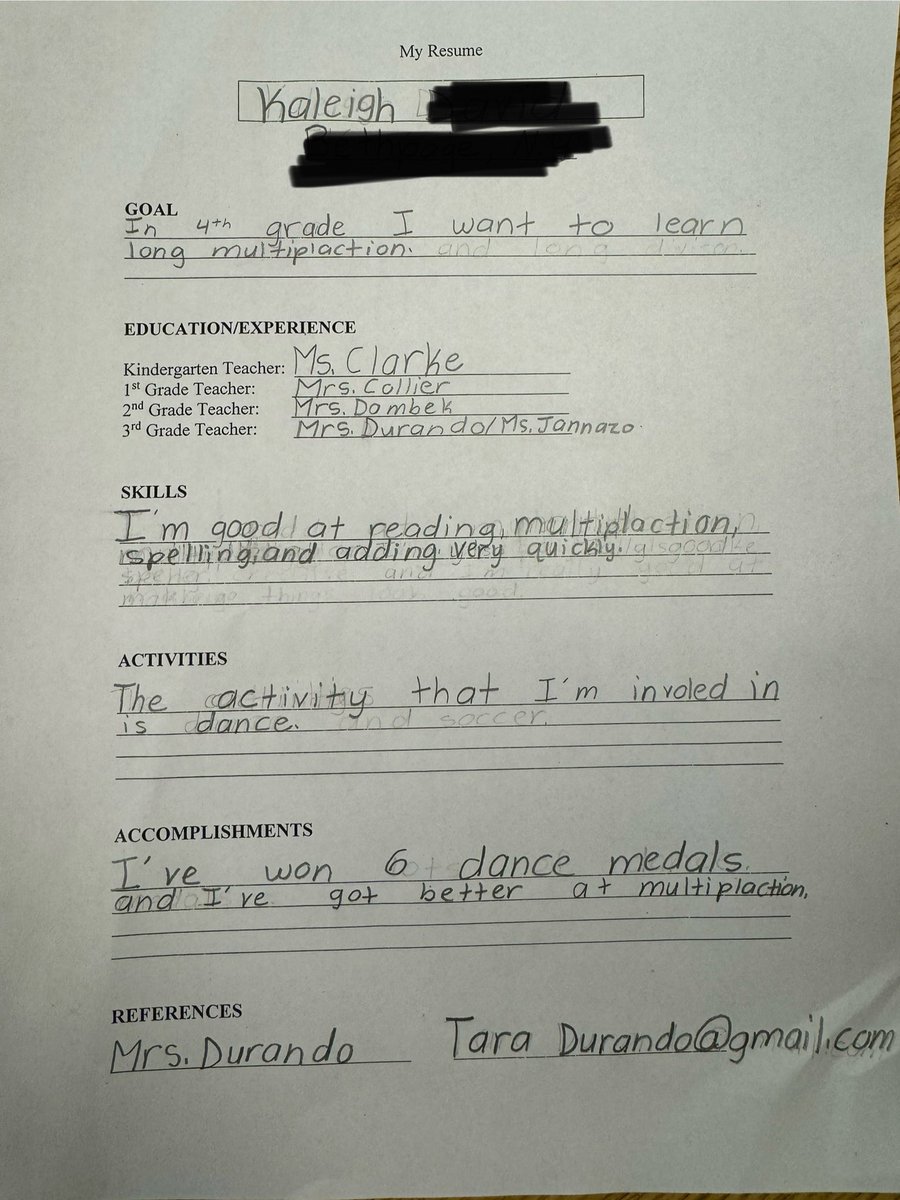 My Resume
Kaleigh
GOAL
In 4th grade I want to learn
long multiplaction. and long divison.
EDUCATION/EXPERIENCE
Kindergarten Teacher: Ms. Clarke
1st Grade Teacher: Mrs. Collier
2nd Grade Teacher: Mrs. Dombek
3rd Grade Teacher: Mrs. Durando/Ms. Jannazo
SKILLS
I'm good at reading, multiplaction,
spelling, and adding very quickly.
ACTIVITIES
The activity that I'm involed in
is dance. and soccer.
ACCOMPLISHMENTS
I've won 6 dance medals
and I've got better at multiplaction,
REFERENCES
Mrs. Durando Tara Durando@gmail.com